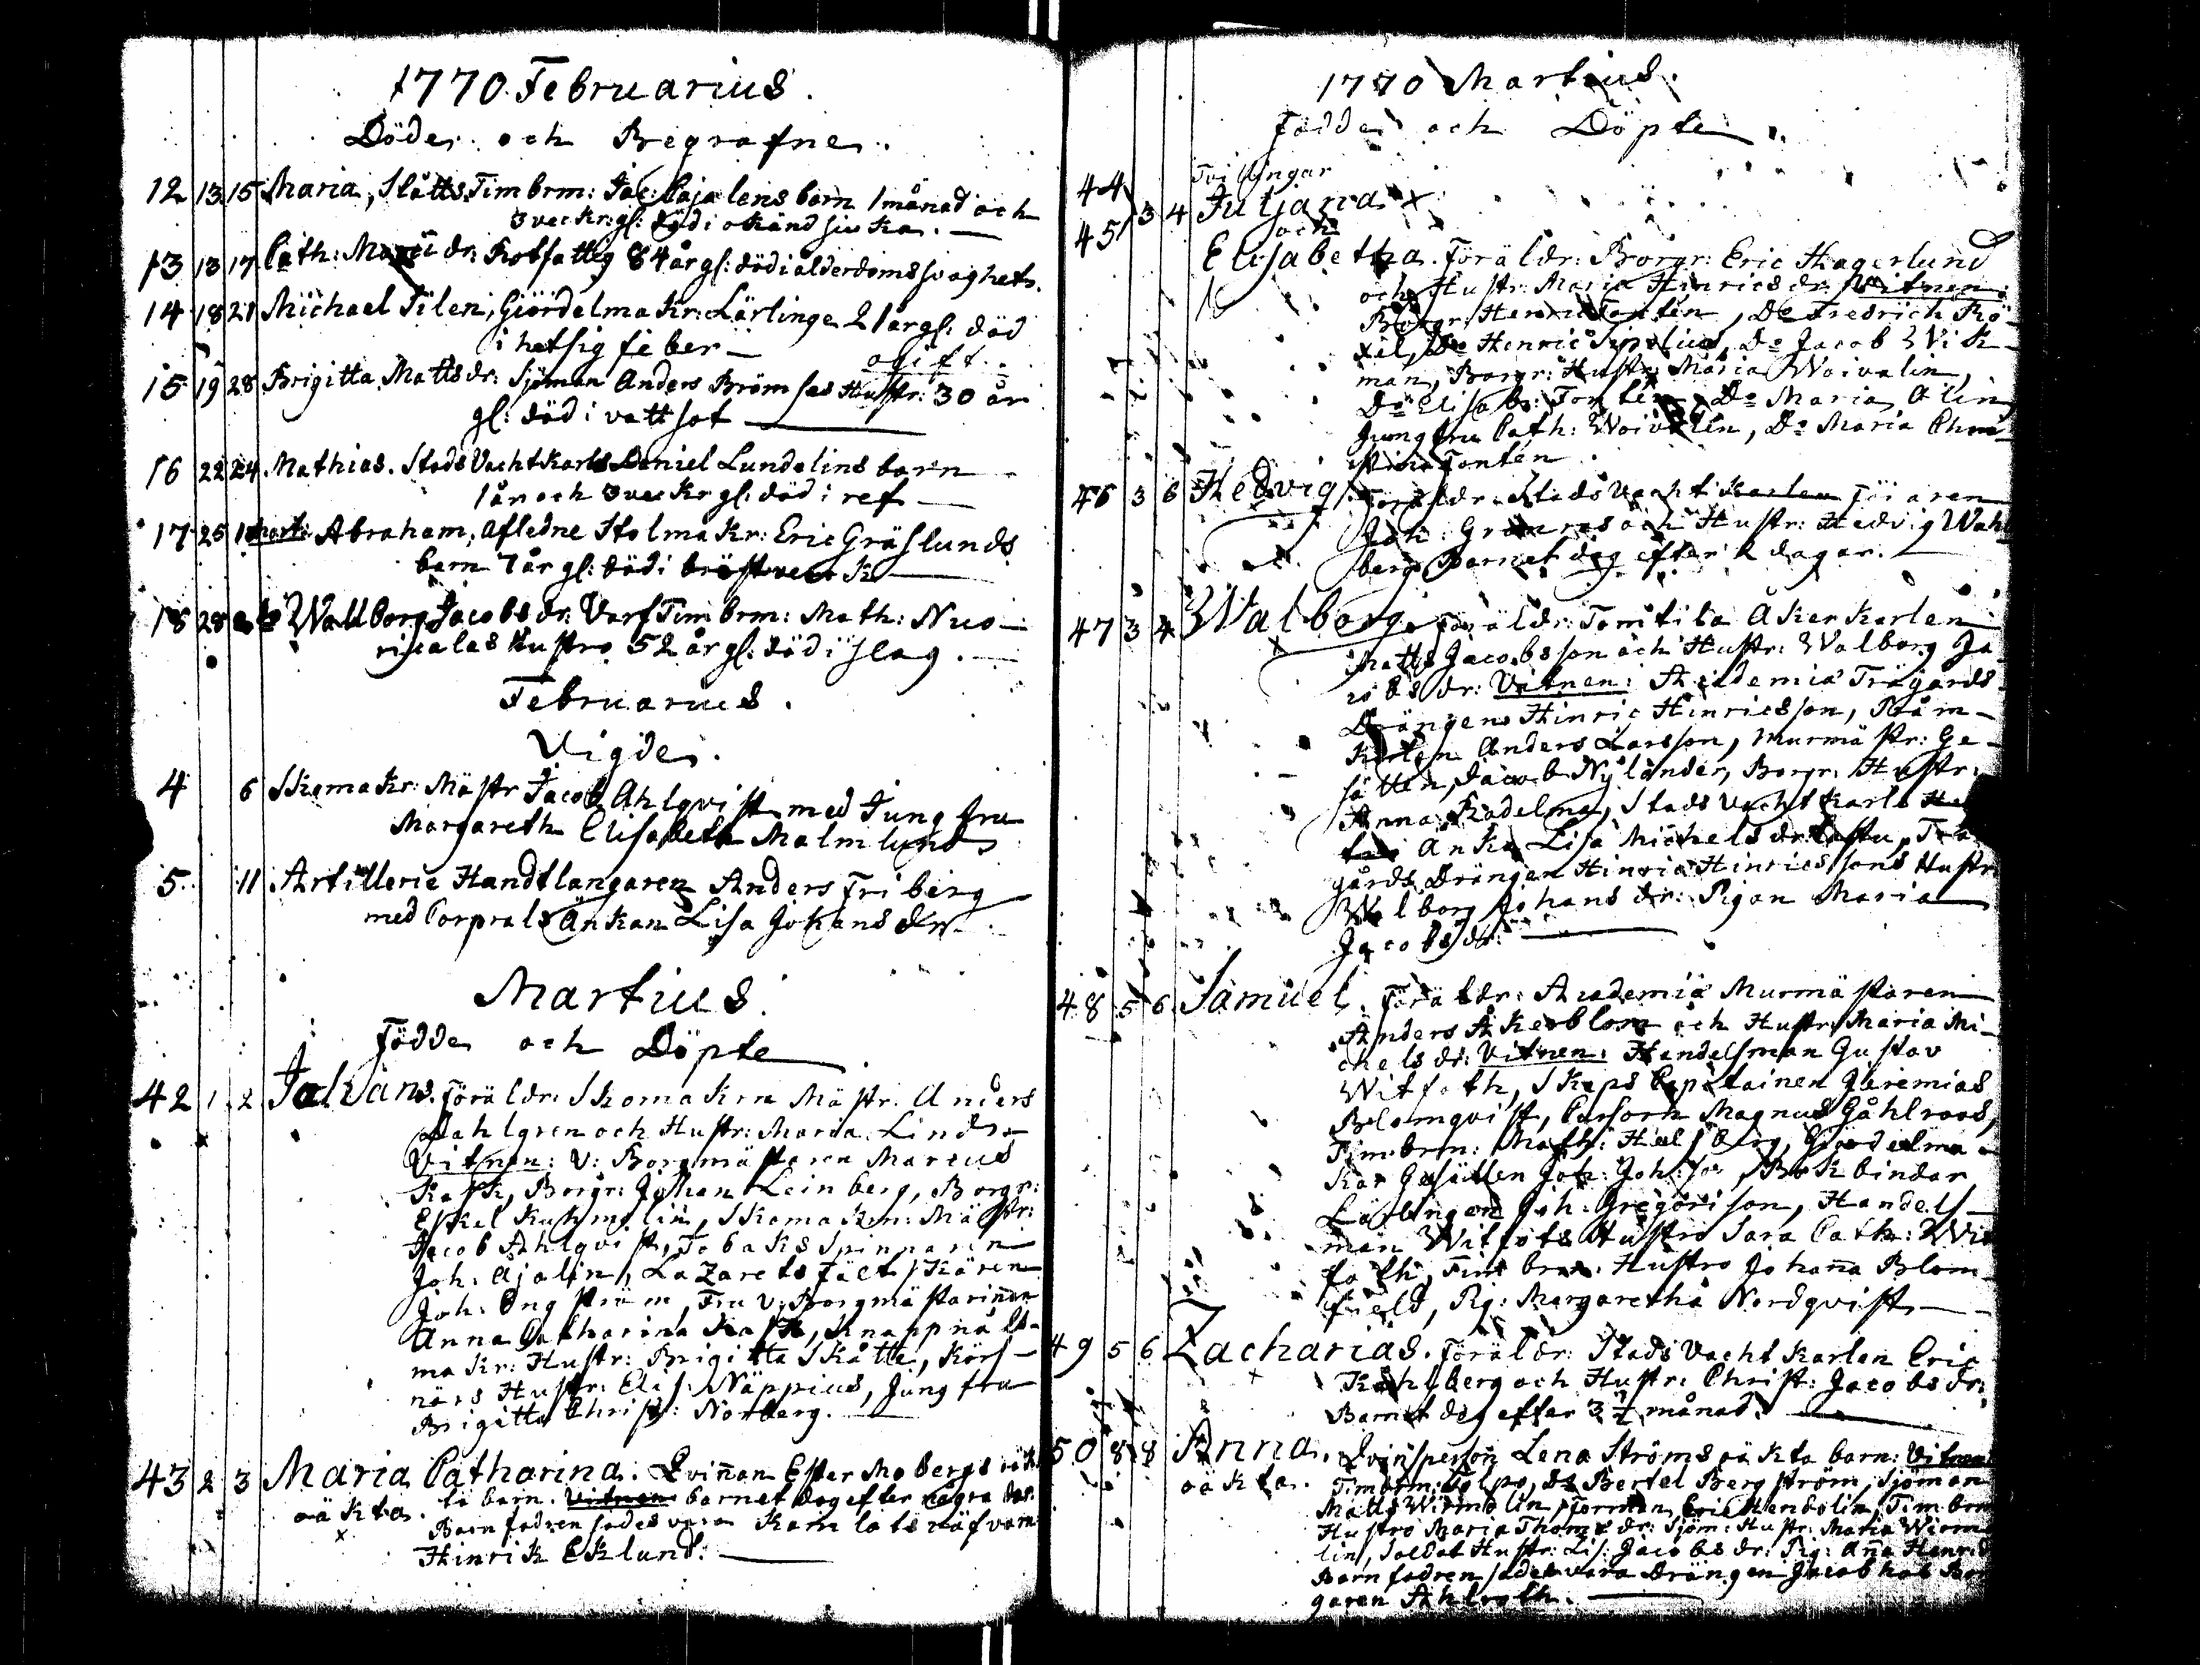 1770. Februarius.
Döde och Begrafne.
12 13 15 Maria, Slåtts Timbrm: Jac: Cajalens barn 1 månad och
3 veckr gl: död i okänd siuka.
13 13 17 Cath: dr: Rotfattig 84 år gl: död i ålderdoms svaghet.
14 18 21 Michael Tilen, Giördelmakr: Lärlinge 21 år gl: död
i hetsig feber ogift.
15 19 28 Brigitta Mattsdr: Sjöman Anders Brömses Hustr: 30 år
gl: död i vattsot
16 22 24 Mathias. Stads Vachtkarls Daniel Lundelins barn
1 år och 3 veckr gl: död i ref
17 25 Abraham, Afledne Stolmakr: Eric Gräslunds
barn 7 år gl: död i bröstverk
18 28 Wallborg Jacobsdr: Varf Timbrm: Math: Nuo-
risalas hustro 52 år gl: död i slag.
Februarius.
Vigde.
4 6 Skomakr: Mästr Jacob Ahlqvist med Jungfru
Margareth Elisabeth Malmlund
5. 11 Artillerie Handtlangaren Anders Friberg
med Corprals Änkan Lisa Johansdr.
Martius.
Födde och Döpte
42 1 2 Johans. Föräldr: Skomakre Mästr. Anders
Dahlgren och Hustr: Maria Lind
Vitnen: V: Borgmästaren Marcus
Kask, Borgr: Johan Leinberg, Borgr:
Eskel Kuhmelin, Skomakrn: Mästr:
Jacob Ahlqvist, Tobaks Spinnaren
Joh: Ajalin, Lazarets Fältskären
Joh: Engström, Fru V: Borgmästarinnan
Anna Catharina Kask, Knappnåls-
makr: Hustr: Brigitta Skåtte, Körs-
närs Hustr: Elis: Näppius, Jungfru
Brigitta Christ: Norberg.
43 2 3 Maria Catharina. Qvinnan Ester Mobergs oäk-
ta barn. Vitnen barnet dog efter några dar.
oäkta. Barnfadren sades vara Kamlots väfvarn
x Hinrik Eklund.
1770 Martius.
Födde och Döpte.
Tvillingar
44 3 4 Juliana x
45 och
Elisabetha. Föräldr: Borgr: Eric Hagerlund
och Hustr: Maria Hinricsdr: Vitnen:
Borgr: Henric Tontén, Do Fredrich Rö-
xil, Do Henric Sipelius, Do Jacob Wik-
man, Borgr: Hustr: Maria Woivalin,
Do Elisab: Tontén, Do Maria Alin,
Jungfru Cath: Woivalin, Do Maria Chri-
stina Tontén.
46 3 6 Hedvig. Föräldr: Stads Vacht karlen Föraren
Joh: och Hustr: Hedvig Wahl
berg Barnet dog efter 2 dagar.
47 3 4 Walborg. Föräldr: Tomtila Åkerkarlen
Matts Jacobsson och Hustr: Walborg Ja
cobsdr: Vitnen: Academiæ Trägårds-
Drängen Hinric Hinricsson,
karlen Anders Larsson, Murmästr: Ge-
sätten, Jacob Nylander, Borgr: Hustr:
Anna Radelma, Stads Vacht karls
Anka Lisa Michelsdr: Trä
gårds Drängen Hinric Hinricssons Hustr:
Walborg Johansdr: Pigan Maria
Jacobsdr:
48 5 6 Samuel. Föräldr: Academiæ Murmästaren
Anders Åkerblom och Hustr: Maria Mi-
chelsdr: Vitnen: Handelsman Gustav
Witfoth, Skeps Capitainen Jeremias
Blomqvist, Cursorn Magnus Gåhlroos,
Timbrm: Math: Helsberg, Giördelma-
kar Gesällen Joh: Joh:son, Bokbindar
Lärlingen Joh: Gregorison, Handels-
man Witfots Hustro Sara Cath: Wit
foth, Timbrm: Hustro Johanna Blom-
field, Pig: Margaretha Nordqvist
49 5 6 Zacharias. Föräldr: Stads Vacht karlen Eric
Kahlberg och Hustr: Christ: Jacobsdr:
Barnet dog efter 3½ månad.
50 8 8 Anna. Qvinsperson Lena Ströms oäkta barn: Vitnen
oäkta. Timbrm: Tolpo, Do Bertel Bergström, Sjöman
Matts Wirmolin, Torman, Eric Stenbolin, Timbrm
Hustro Maria Thomædr: Sjöm: Hustr: Maria Wirmo
lin, Soldat Hustr: Lis: Jacobsdr: Pig: Anna Henricd
Barnfadren sades vara Drängen Jacob hos Bor
garen Ahlroth.